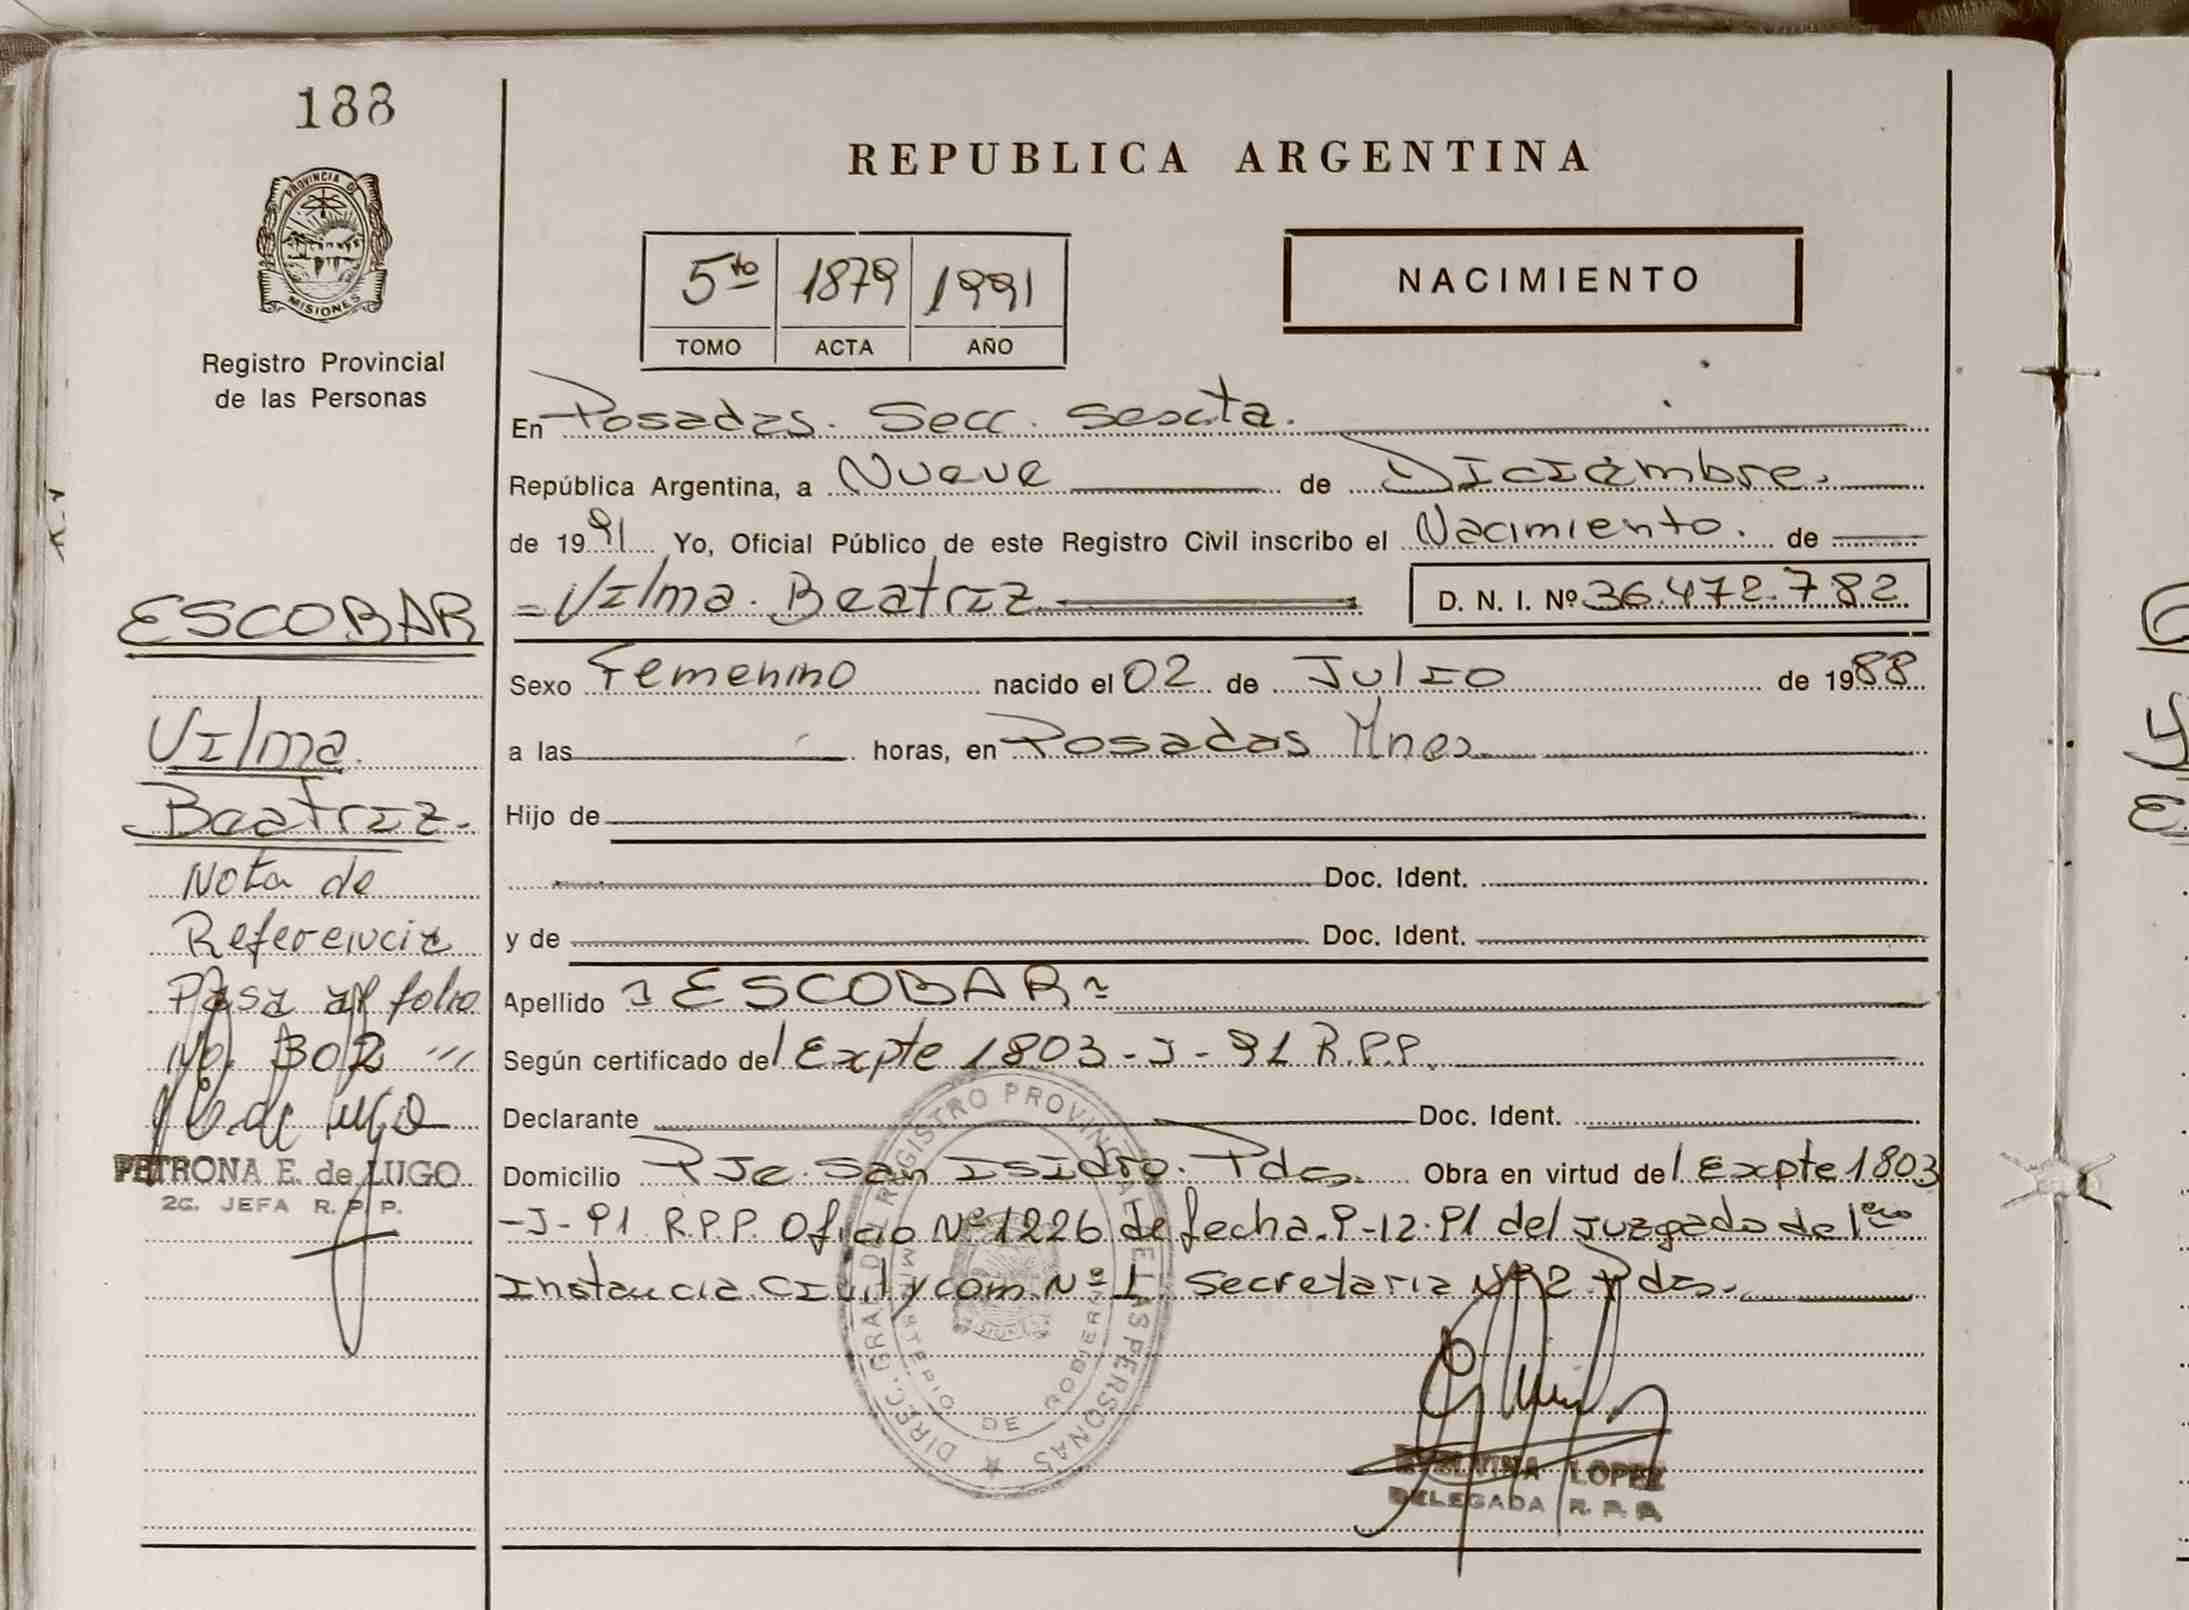 188
PROVINCIA DE
MISIONES
Registro Provincial
de las Personas
REPUBLICA ARGENTINA
5to 1879 1991
TOMO ACTA AÑO
NACIMIENTO
En Posadas. Secc. Sexta.
República Argentina, a Nueve de Diciembre.
de 1991 Yo, Oficial Público de este Registro Civil inscribo el Nacimiento. de
Vilma. Beatriz D. N. I. Nº 36.472.782
Sexo Femenino nacido el 02 de Julio de 1988
a las horas, en Posadas Mnes
Hijo de
Doc. Ident.
y de Doc. Ident.
Apellido ESCOBAR
Según certificado del Expte 1803-J-91 R.P.P.
Declarante Doc. Ident.
Domicilio PJe. San Isidro. Pdas. Obra en virtud del Expte 1803
-J-91 R.P.P. Oficio Nº 1226 de fecha 9-12-91 del Juzgado de 1era
Instancia Civil y com. Nº 1 Secretaria Nº 2 Pdas.
ESCOBAR
Vilma
Beatriz.
Nota de
Referencia
Pasa al folio
No. 302
PETRONA E. de LUGO
2G. JEFA R. P. P.
DIREC. GRAL DEL REGISTRO PROVINCIAL DE LAS PERSONAS
MINISTERIO DE GOBIERNO
LOPEZ
DELEGADA R. P. P.